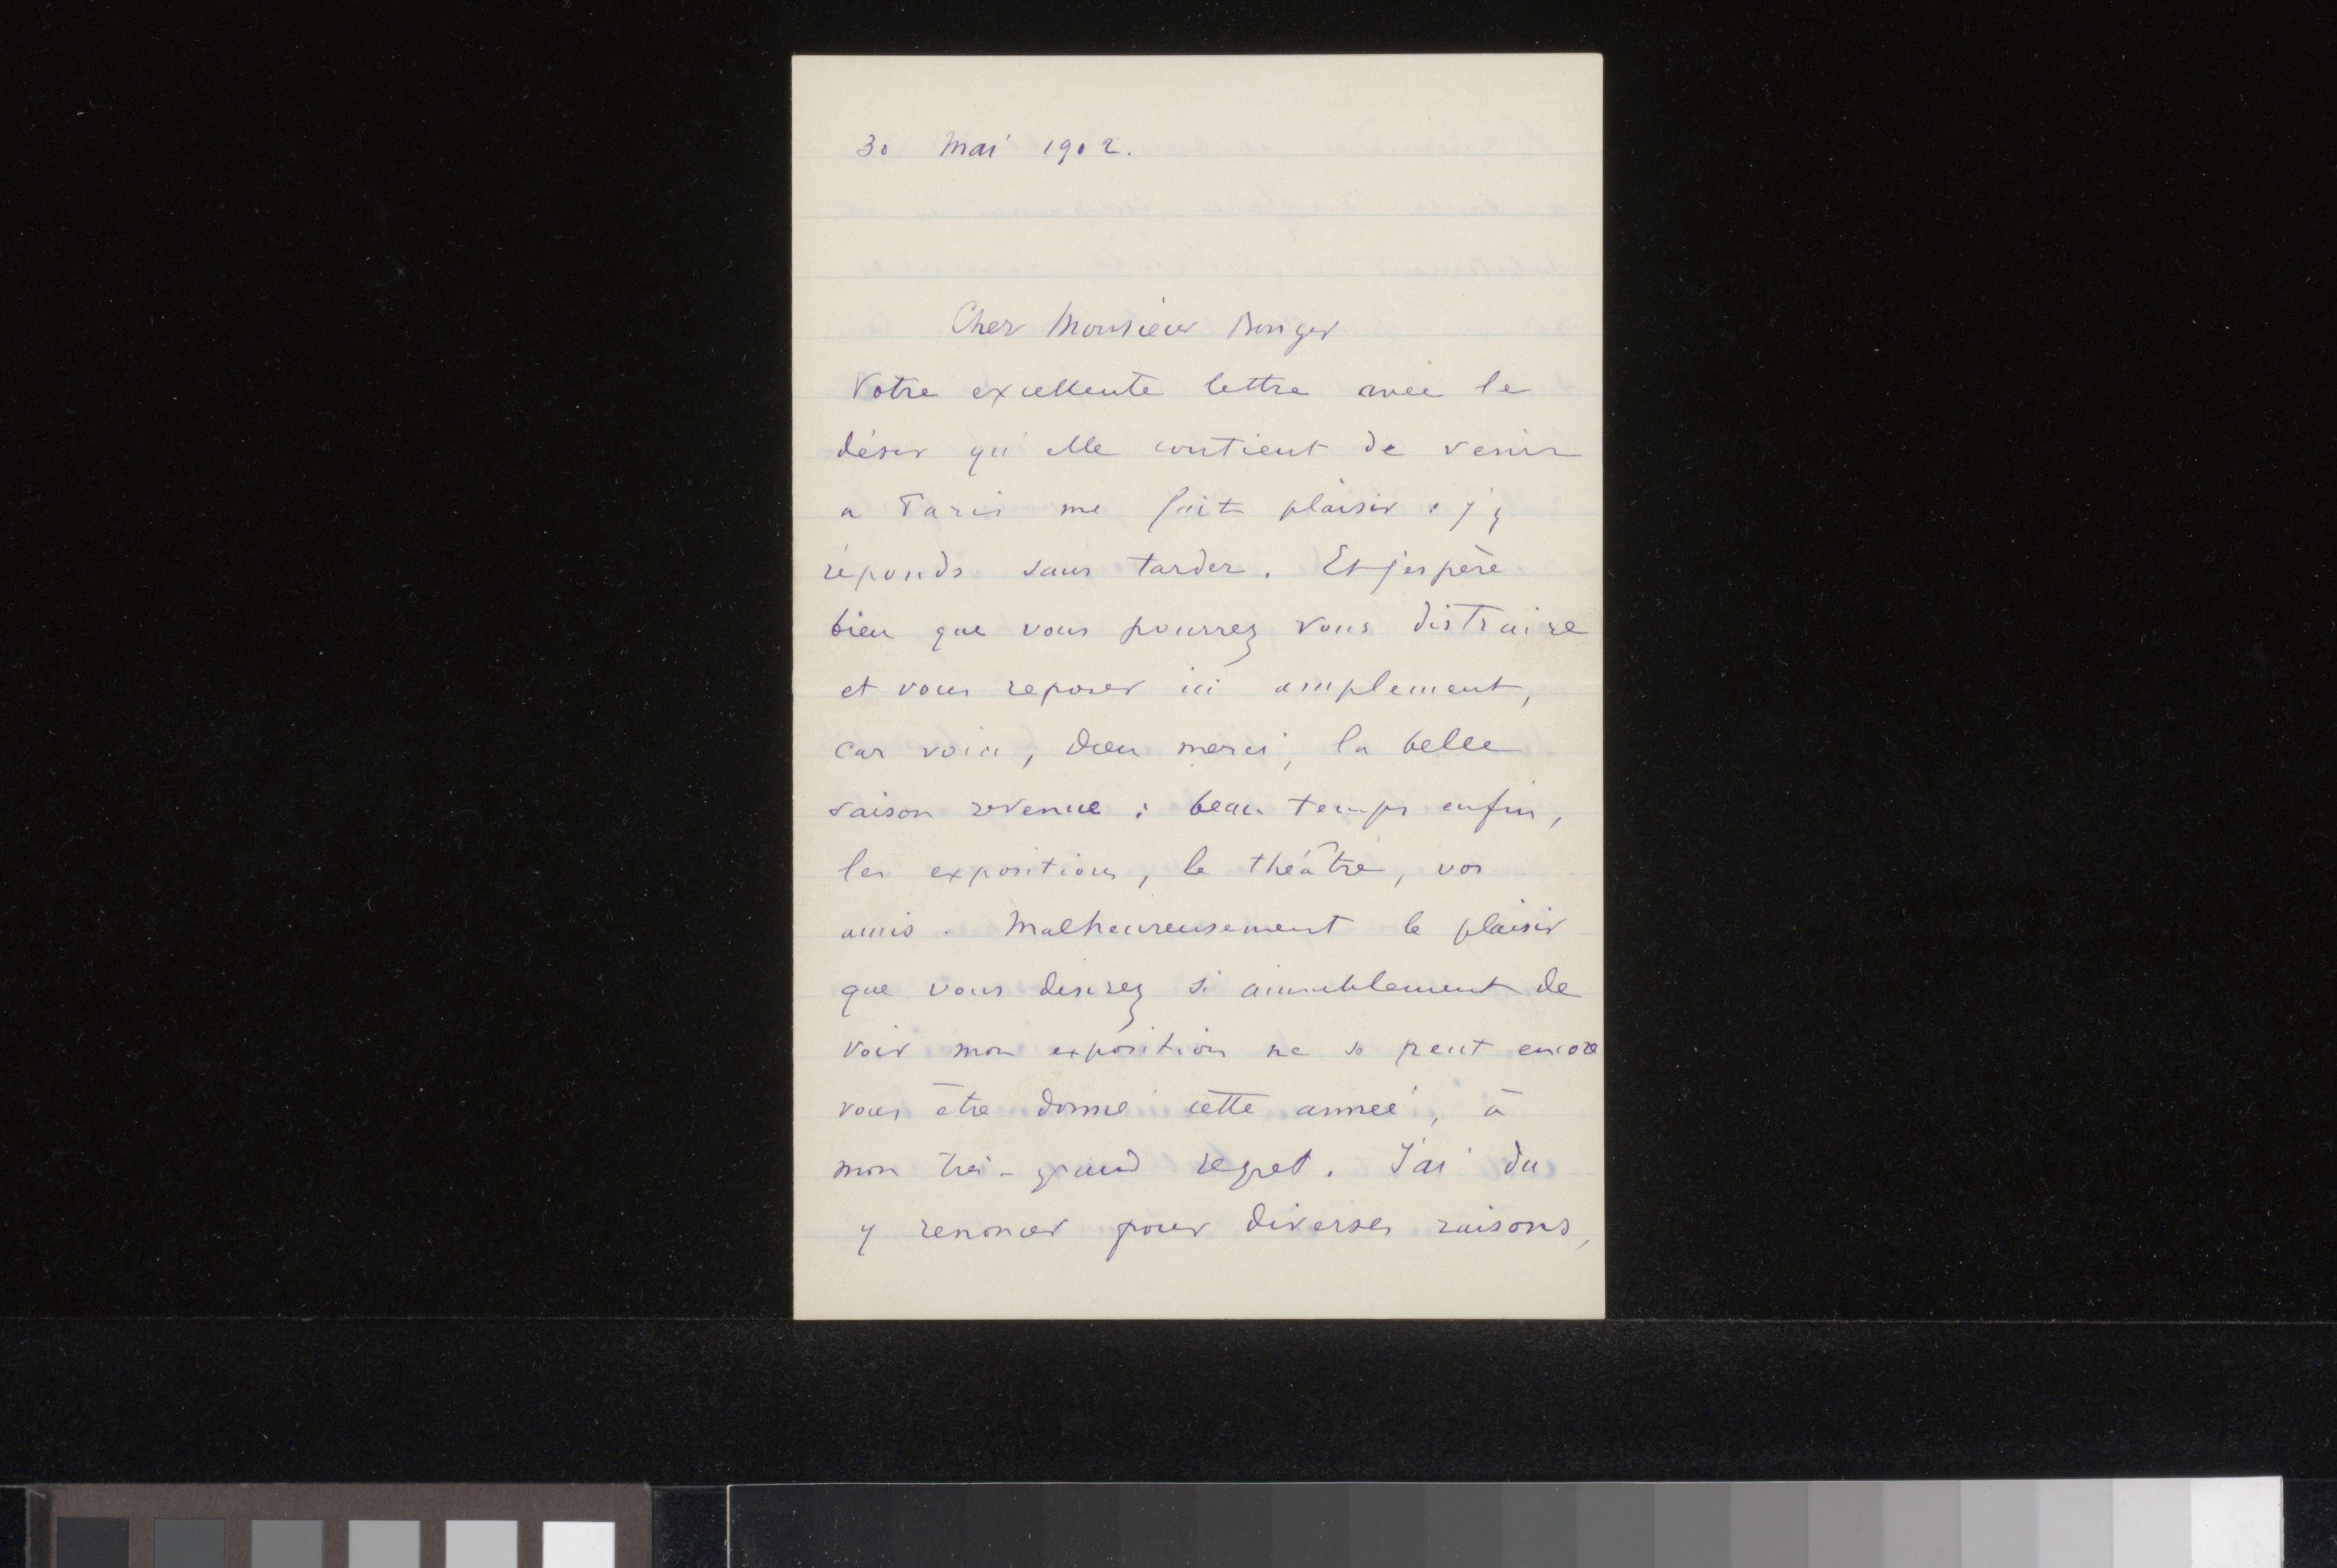 30 Mai 1902.
Cher Monsieur Bonger
Votre excellente lettre avec le
désir qu'elle contient de venir
a Paris me fait plaisir : j'y
réponds sans tarder. Et j'espère
bien que vous pourrez vous distraire
et vous reposer ici amplement,
car voici, dieu merci, la belle
saison revenue : beau temps enfin,
les expositions, le théâtre, vos
amis. Malheureusement le plaisir
que vous desirez si aimablement de
voir mon exposition ne se peut encore
vous être donné cette année, à
mon très-grand regret. J'ai du
y renoncer pour diverses raisons,